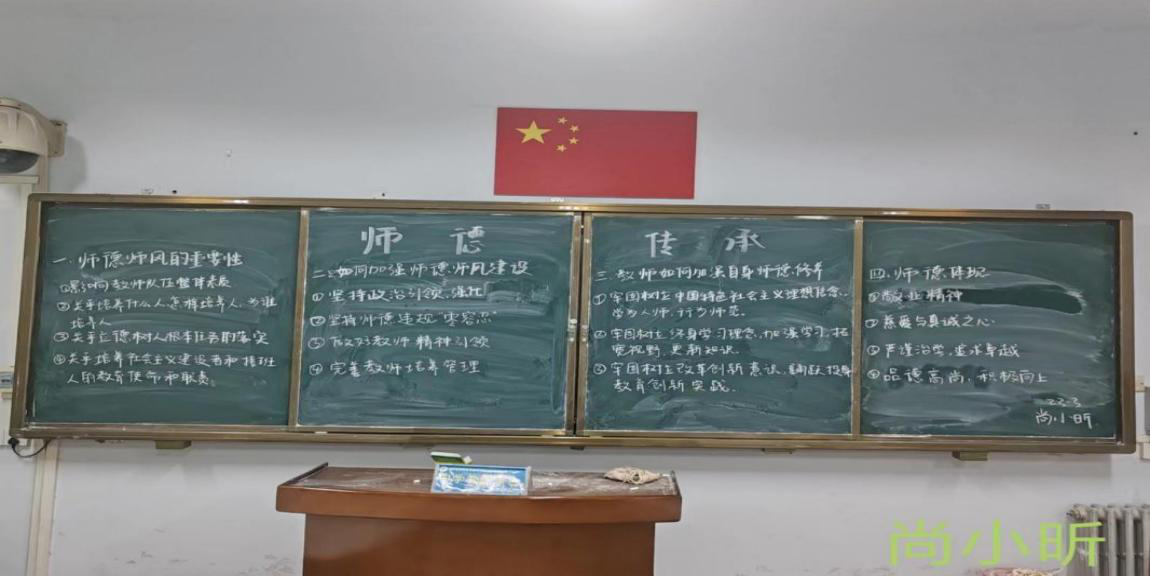 师德
传承
一、师德师风的重要性
①影响教师队伍整体素质
②关乎培养什么人、怎样培养人、为谁
培养人
③关乎立德树人根本任务的落实
④关乎培养社会主义建设者和接班
人的教育使命和职责
二、如何加强师德师风建设
①坚持政治引领、强化
②坚持师德违规"零容忍"
③做好教师精神引领
④完善教师培养管理
三、教师如何加强自身师德修养
①牢固树立中国特色社会主义理想信念、
学为人师、行为师范。
②牢固树立终身学习理念、加强学习、拓
宽视野、更新知识。
③牢固树立改革创新意识、踊跃投身
教育创新实践。
四、师德体现
①敬业精神
②慈爱与真诚之心
③严谨治学、追求卓越
④品德高尚、积极向上
22-3
尚小昕
尚小昕